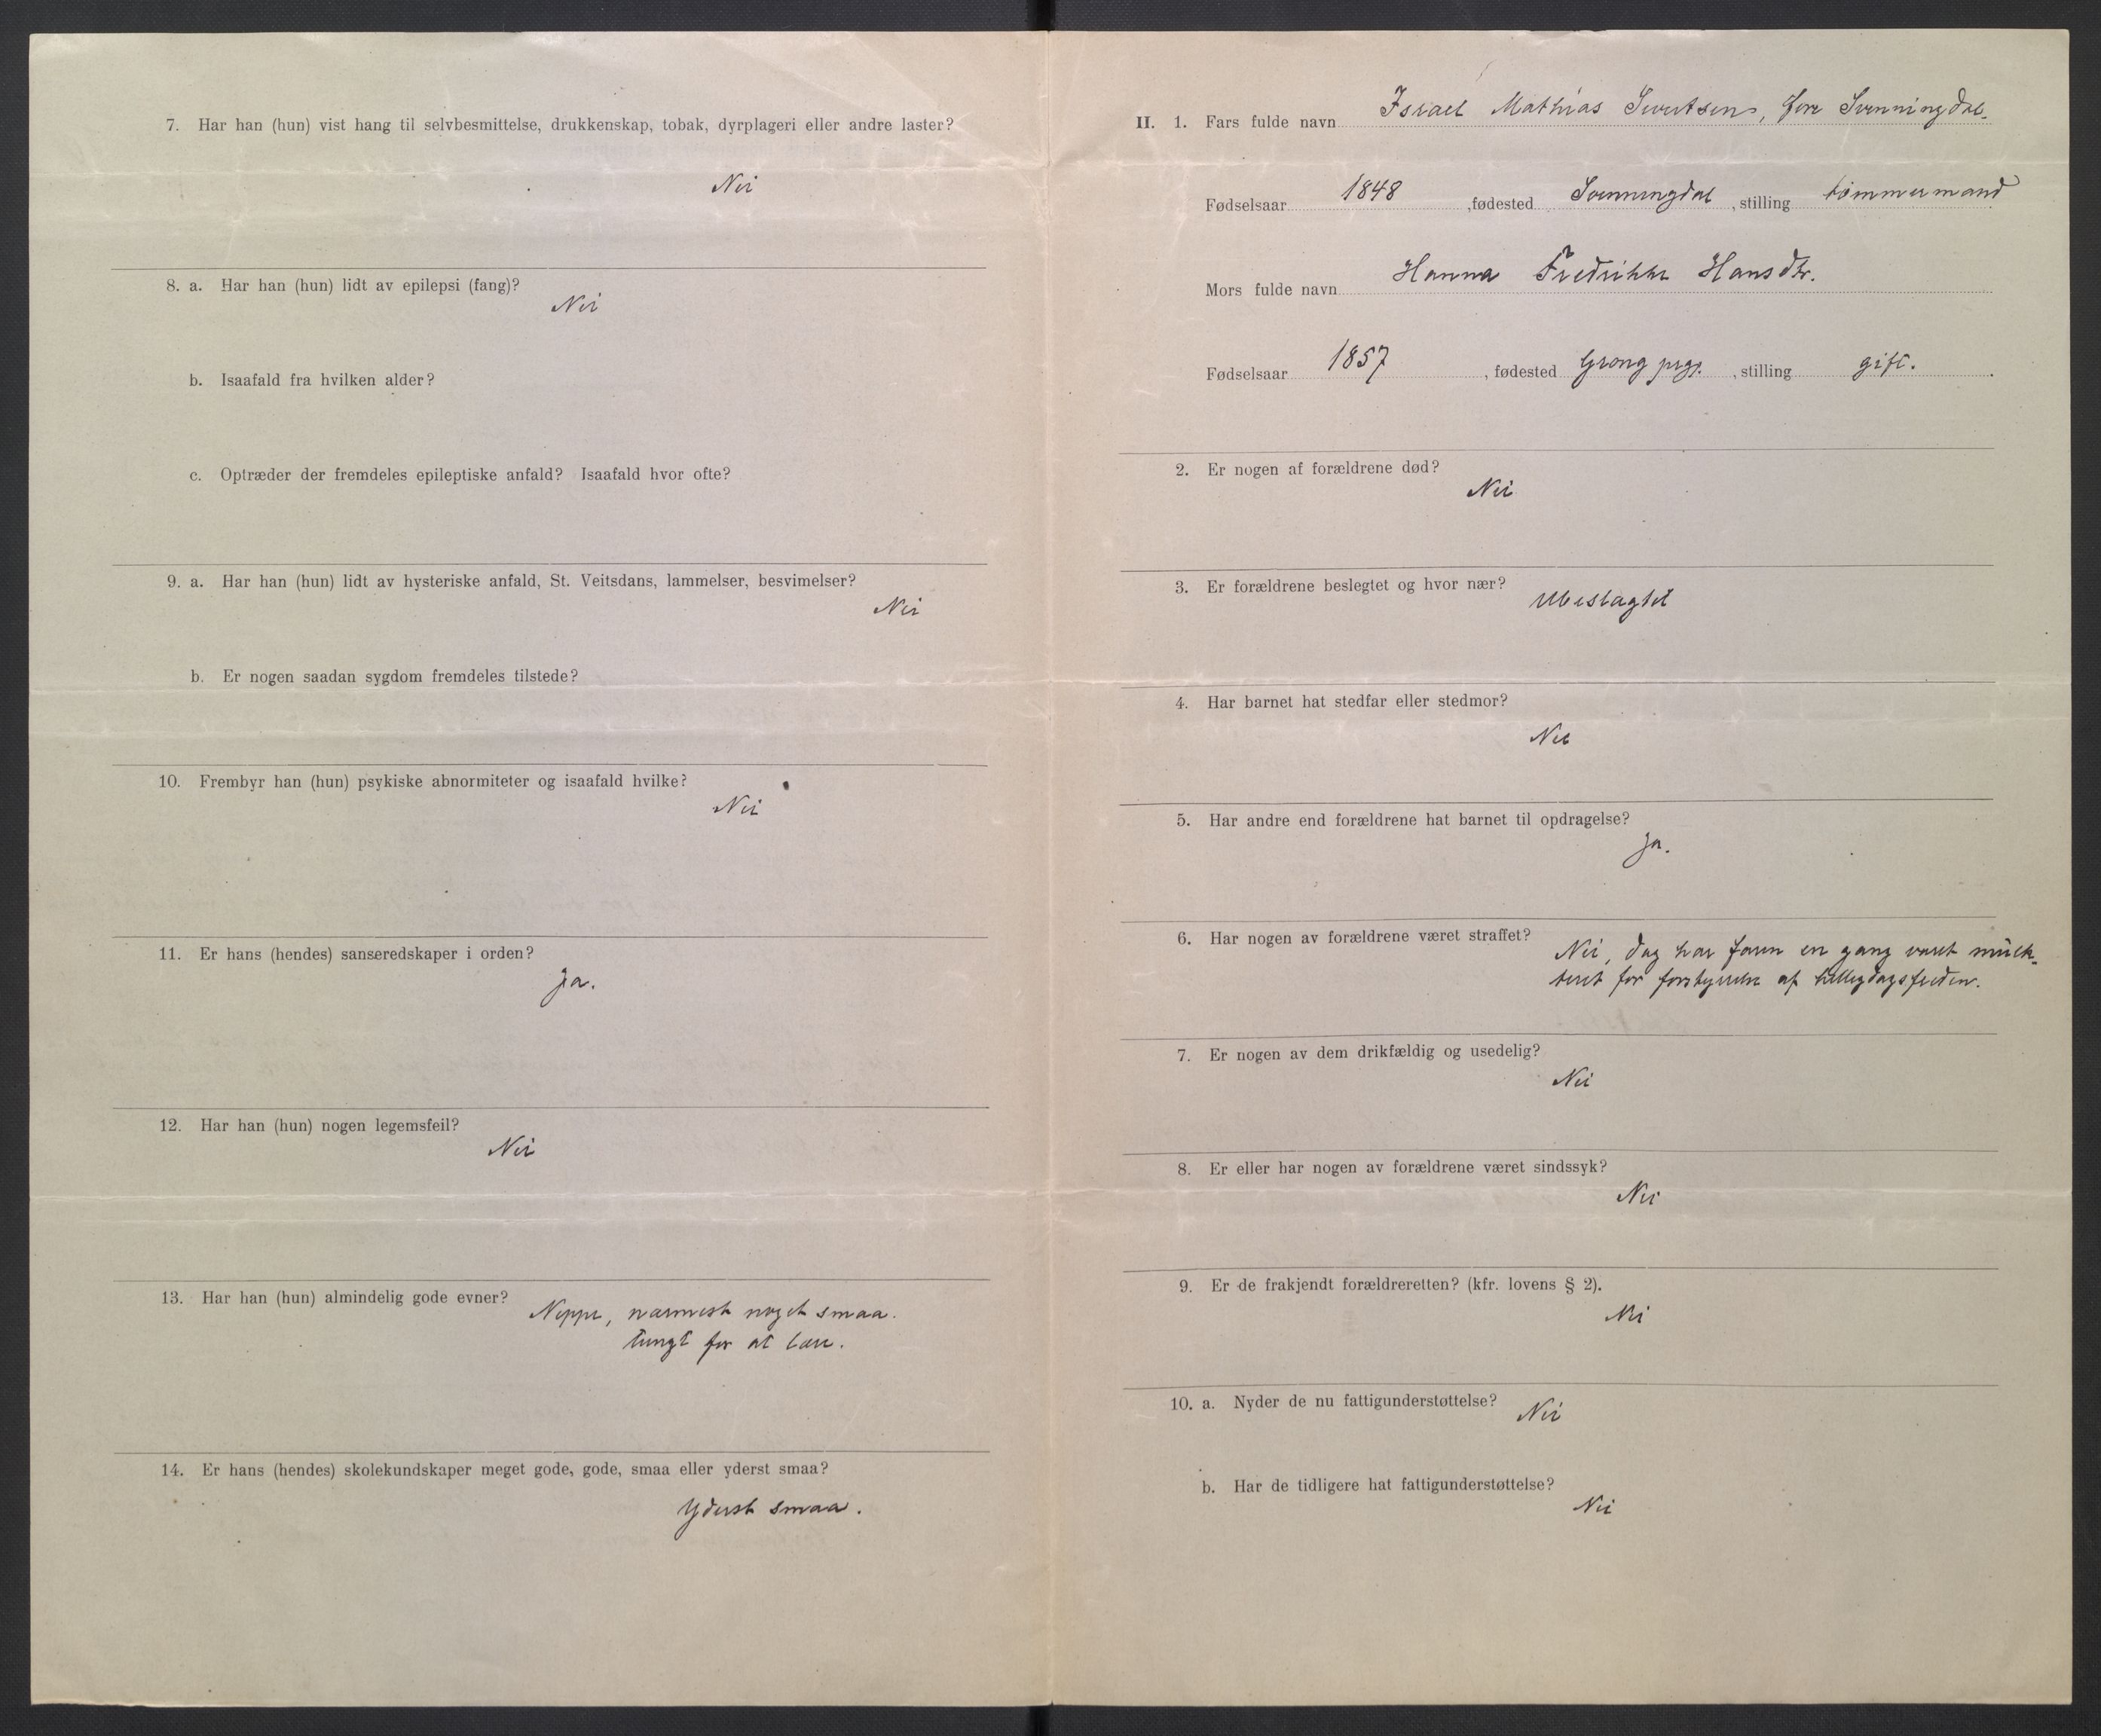 7. Har han (hun) vist hang til selvbesmittelse, drukkenskap, tobak, dyrplageri eller andre laster?
Nei
8. a. Har han (hun) lidt av epilepsi (fang)?
Nei
b. Isaafald fra hvilken alder?
c. Optræder der fremdeles epileptiske anfald? Isaafald hvor ofte?
9. a. Har han (hun) lidt av hysteriske anfald, St. Veitsdans, lammelser, besvimelser?
Nei
b. Er nogen saadan sygdom fremdeles tilstede?
10. Frembyr han (hun) psykiske abnormiteter og isaafald hvilke?
Nei
11. Er hans (hendes) sanseredskaper i orden?
Ja.
12. Har han (hun) nogen legemsfeil?
Nei
13. Har han (hun) almindelig gode evner?
Neppe, nærmest noget smaa.
tungt for at lære.
14. Er hans (hendes) skolekundskaper meget gode, gode, smaa eller yderst smaa?
Yderst smaa.
II. 1. Fars fulde navn Israel Mathias Sivertsen, Svenningdal.
Fødselsaar 1848, fødested Svenningdal, stilling tømmermand
Mors fulde navn Hanna Fredrikke Hansdtr.
Fødselsaar 1857, fødested Grong prgj., stilling gift.
2. Er nogen af forældrene død?
Nei
3. Er forældrene beslegtet og hvor nær?
Ubeslægtet
4. Har barnet hat stedfar eller stedmor?
Nei
5. Har andre end forældrene hat barnet til opdragelse?
Ja.
6. Har nogen av forældrene været straffet?
Nei, dog har faren en gang været mulk-
teret for forstyrrelse af helligdagsfreden.
7. Er nogen av dem drikfældig og usedelig?
Nei
8. Er eller har nogen av forældrene været sindssyk?
Nei
9. Er de frakjendt forældreretten? (kfr. lovens § 2).
Nei
10. a. Nyder de nu fattigunderstøttelse?
Nei
b. Har de tidligere hat fattigunderstøttelse?
Nei